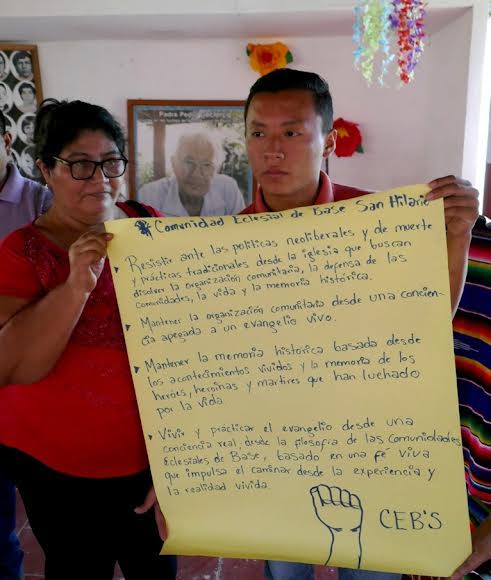 Padre Pedro Declercq
Comunidad Eclesial de Base San Hilario
Resistir ante las politicas neoliberales y de muerte
y prácticas tradicionales desde la iglesia que buscan
disolver la organización comunitaria, la defensa de las
comunidades, la vida y la memoria histórica.
Mantener la organización comunitaria desde una concien-
cia apegada a un evangelio vivo.
Mantener la memoria histórica basada desde
los acontecimientos vividos y la memoria de los
heróes, heroinas y martires que han luchado
por la vida
Vivir y prácticar el evangelio desde una
conciencia real, desde la filosofia de las comunidades
Eclesiales de Base, basado en una fé viva
que impulsa el caminar desde la experiencia y
la realidad vivida.
CEB'S